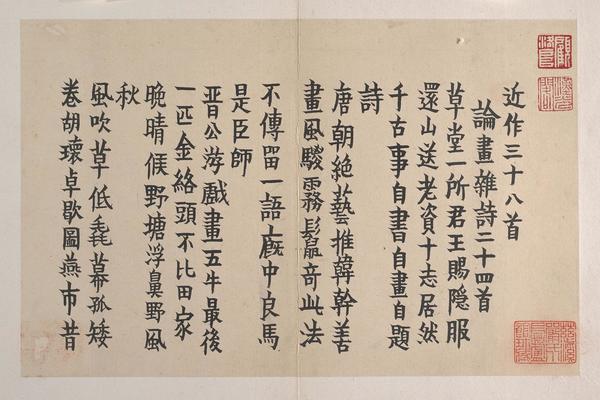 近作三十八首
論畫雜詩二十四首
草堂一所君王賜隐服
還山送老資十志居然
千古事自書自畫自題
詩
唐朝絕藝推韓幹善
畫風騣霧鬣奇此法
不傳留一語廐中良馬
是臣師
晋公游戲畫五牛最後
一匹金絡頭不比田家
晚晴候野塘浮鼻野風
秋
風吹草低毳幕孤矮
卷胡瓌卓歇圖燕市昔